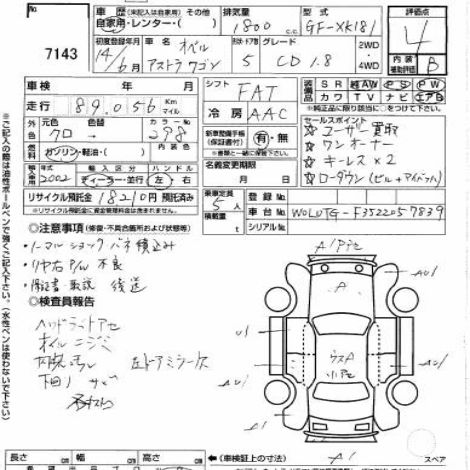 7143
車歴 (未記入は自家用) その他
自家用・レンター・( )
排気量
1800 c.c.
型式
GF-XK181
評価点
4
初度登録年月
14/6月
車名
オペル
アストラワゴン
ドア形状
5
グレード
CD 1.8
2WD
・
4WD
内装
補助評価
B
車検 年 月
走行 89,056 Km マイル
シフト
FAT
装備品
SR 純AW PS PW
カワ TV ナビ エアB
※純正品に限り該当に○
元色 色替 カラーNo.
クロ 298
冷房
AAC
セールスポイント
☆ユーザー買取
☆ワンオーナー
☆キーレス×2
☆ローダウン(ビル+アイバッハ)
燃料
ガソリン・軽油・( )
内装色
新車整備手帳
(保証書付) 有・無
2002 ディーラー・並行
ハンドル
左・右
名義変更期限
月 日
リサイクル預託金 18210円 預託済み
乗車定員
5人
積載量
t
登録番号
車台No. W0L0TG-F3522057839
シリアルNo.
◎注意事項 (修復・不具合箇所および欠品)
・ノーマルショック バネ積込み
・リヤ右P/W不良
・保証書・取説 後送
◎検査員報告
ヘッドライトアセ
オイルニジミ
内装汚レ
下回りサビ
左ドアミラーズ
A1
U1
A1
長さ cm
幅 cm
高さ cm
←(車検証上の寸法)
スペア
※ご記入の際は油性ボールペンで強くご記入下さい。(水性ペンは使わないで下さい)